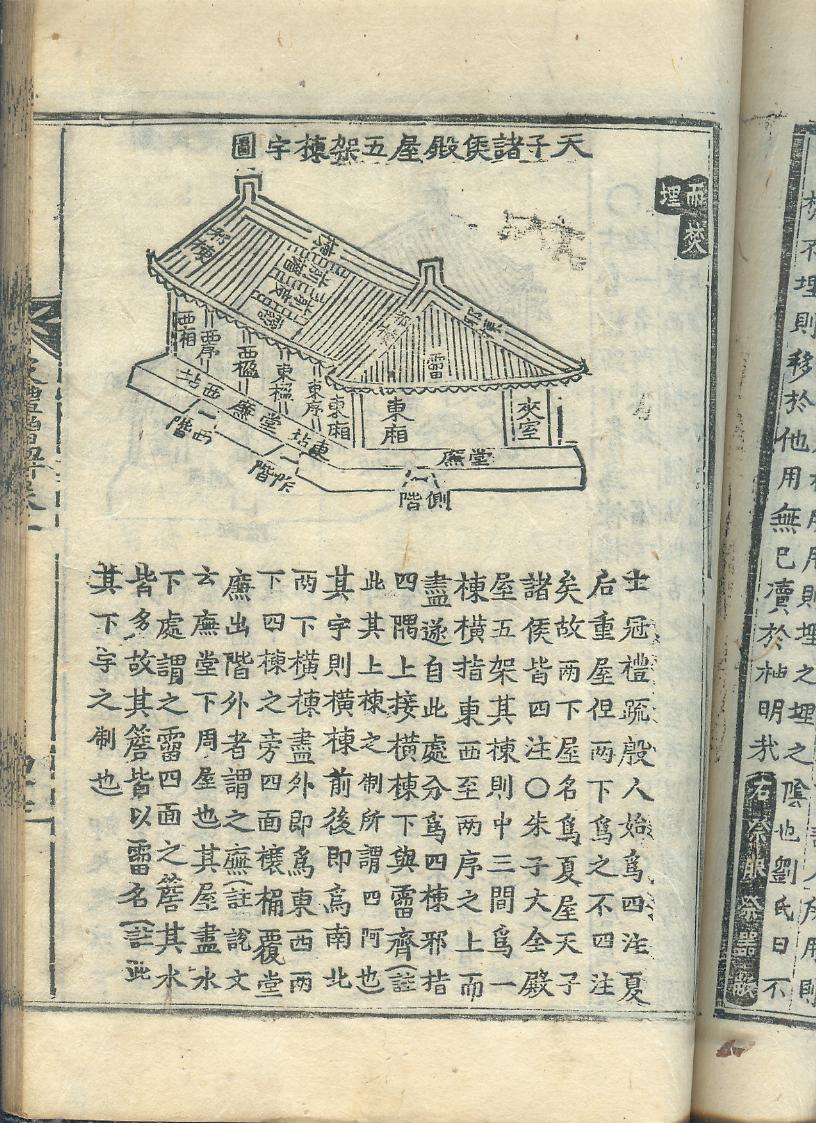 不埋則移於他用無已瀆於神明哉
則埋之埋之陰也劉氏曰不
埋
天子諸侯殿屋五架棟宇圖
邪棟
霤
西廂
西序
西楹
東楹
東序
東廂
東廂
夾室
西坫
堂廉
東坫
堂廉
西階
阼階
側階
士冠禮疏殷人始爲四注夏
后重屋但两下爲之不四注
矣故两下屋名爲夏屋天子
諸侯皆四注〇朱子大全殿
屋五架其棟則中三間爲一
棟橫指東西至两序之上而
盡遂自此處分爲四棟邪指
四隅上接橫棟下與霤齊(註
此其上棟之制所謂四阿也
其宇則橫棟前後即爲南北
两下橫棟盡外即爲東西两
下四棟之旁四面榱桷覆堂
廉出階外者謂之廡(註說文
云廡堂下周屋也其屋盡水
下處謂之霤四面之簷其水
皆多故其簷皆以霤名(註此
其下宇之制也